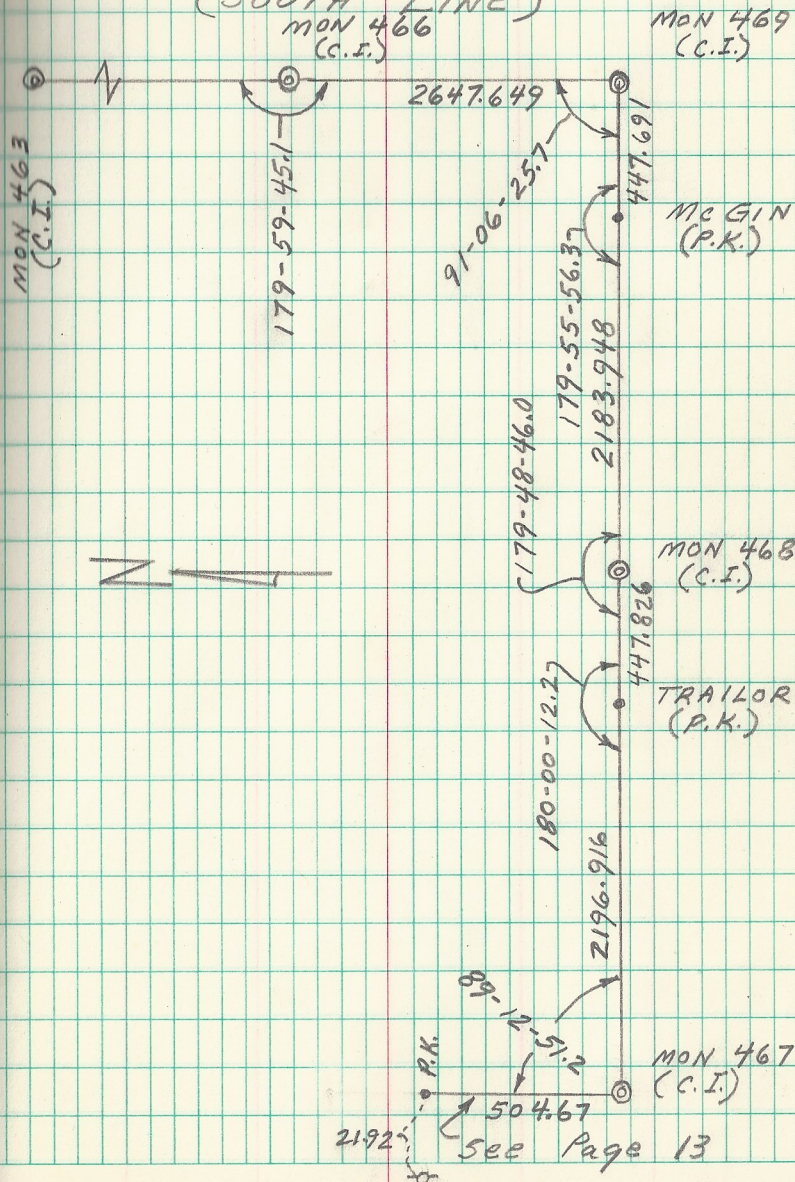 (SOUTH LINE)
MON 466
(C.I.)
MON 469
(C.I.)
MON 463
(C.I.)
2647.649
179-59-45.1
91-06-25.7
447.691
MCGIN
(P.K.)
179-55-56.3
2183.948
179-48-46.0
MON 468
(C.I.)
N
447.826
TRAILOR
(P.K.)
180-00-12.2
2196.916
89-12-51.2
P.K.
MON 467
(C.I.)
504.67
21.92
See Page 13